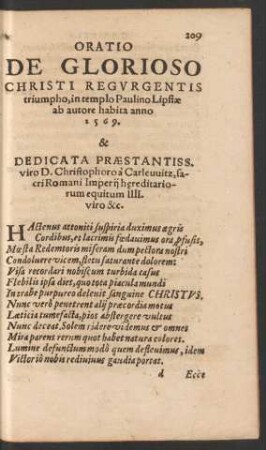 209
ORATIO
DE GLORIOSO
CHRISTI REGVRGENTIS
triumpho, in templo Paulino Lipsiæ
ab autore habita anno
1569.
&
DEDICATA PRÆSTANTISS.
viro D. Christophoro à Carleuuitz, sa-
cri Romani Imperij hęreditario-
rum equitum IIII.
viro &c.
HActenus attoniti suspiria duximus ægris
Cordibus, et lacrimis fœdauimus ora ꝓfusis,
Mœsta Redemtoris miseram dum pectora nostri
Condoluere vicem, fletu saturante dolorem:
Visa recordari nobiscum turbida casus
Flebilis ipsa dies, quo tota piacula mundi
In trabe purpureo deleuit sanguine CHRISTVS.
Nunc verò penetrent alij præcordia motus
Læticia tumefacta, pios abstergere vultus
Nunc deceat. Solem ridere videmus & omnes
Mira parens rerum quot habet natura colores.
Lumine defunctum modò quem defleuimus, idem
Victoriō nobis rediuiuus gaudia portat.
d Ecce